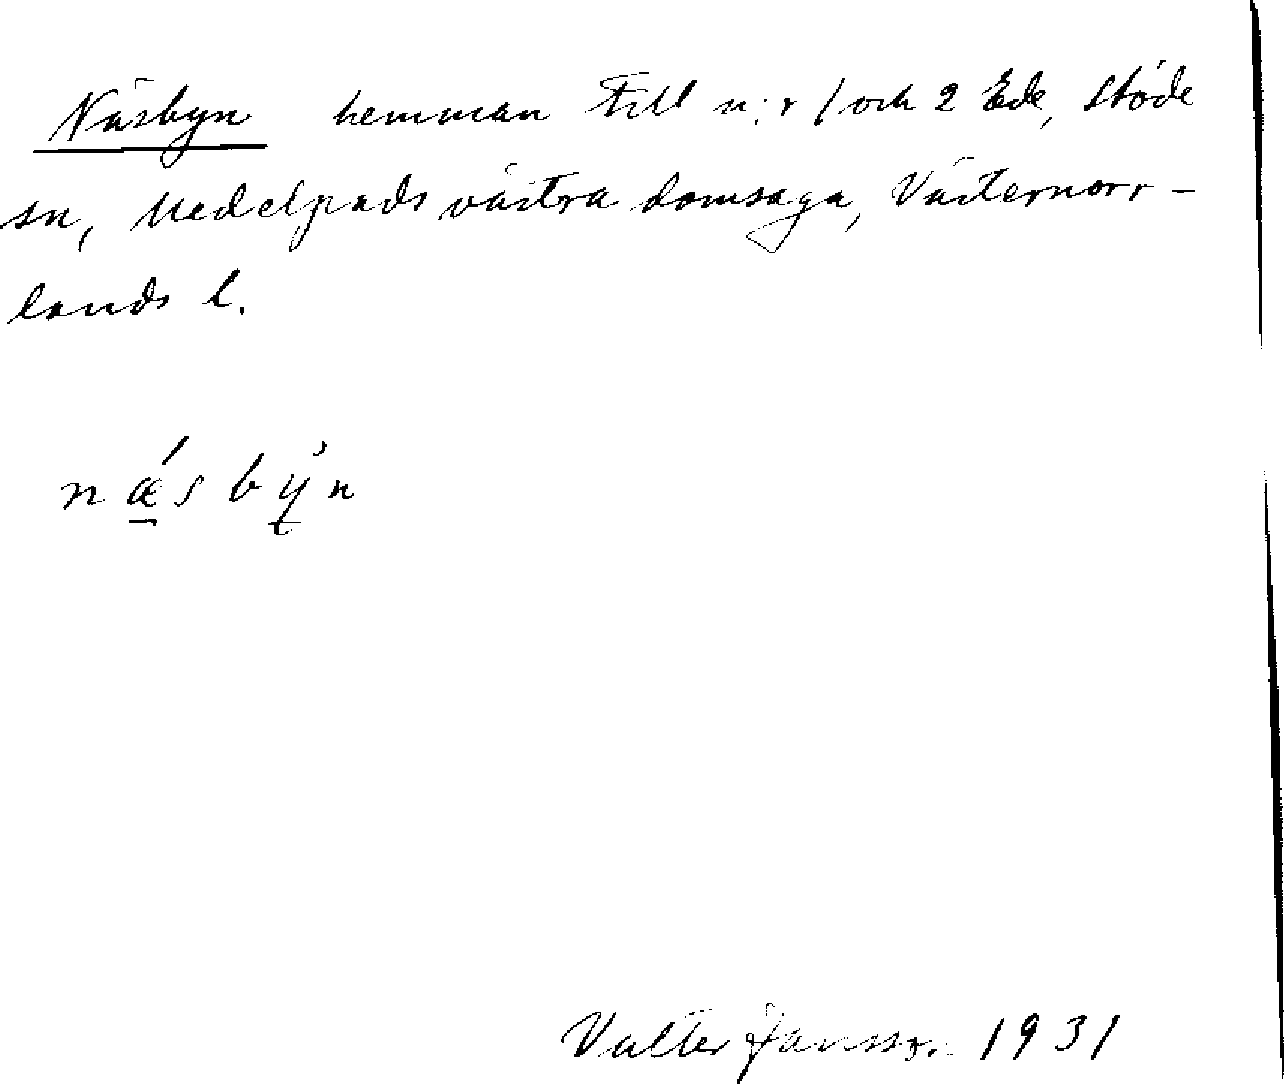 Näsbyn hemman till n:r 1 och 2 Ede, Stöde
sn, Medelpads västra domsaga, Västernorr-
lands l.
nǽ̱sbỳn
Valter Jansson 1931